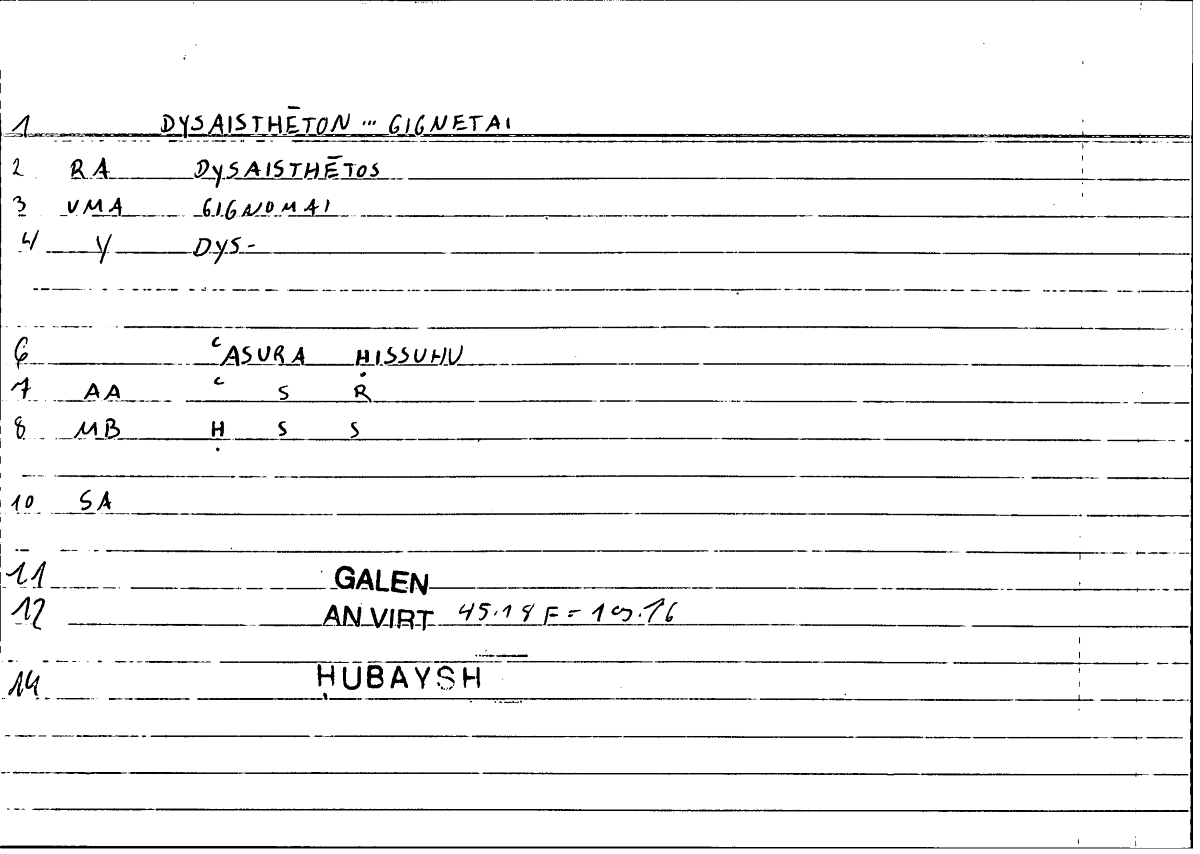 1 DYSAISTHĒTON ... GIGNETAI
2 RA DYSAISTHĒTOS
3 VMA GIGNOMAI
4 Y DYS-
6 ʿASURA ḤISSUHU
7 AA ʿ S R
8 MB Ḥ S S
10 SA
11 GALEN
12 AN VIRT 45.18 F =
14 ḤUBAYSH